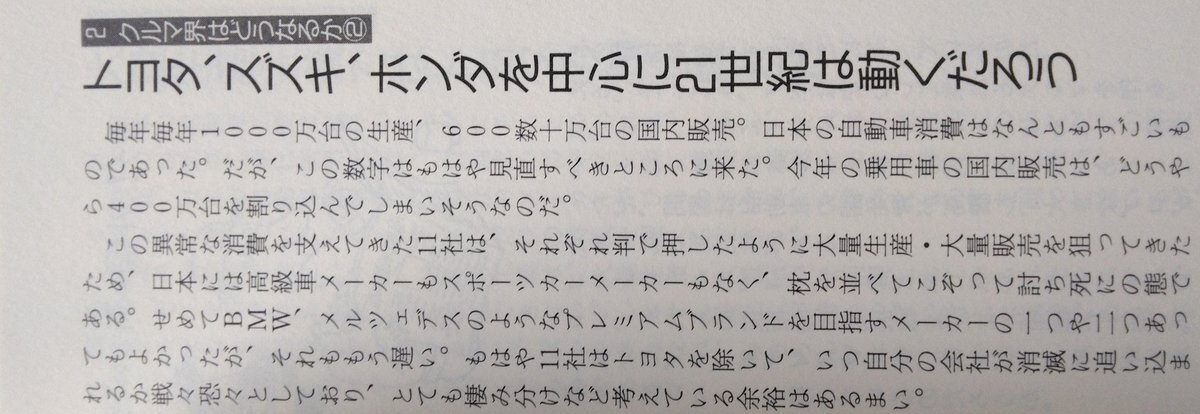 2 クルマ界はどうなるか②
トヨタ、スズキ、ホンダを中心に21世紀は動くだろう
毎年毎年１０００万台の生産、６００数十万台の国内販売。日本の自動車消費はなんともすごいも
のであった。だが、この数字はもはや見直すべきところに来た。今年の乗用車の国内販売は、どうや
ら４００万台を割り込んでしまいそうなのだ。
この異常な消費を支えてきた11社は、それぞれ判で押したように大量生産・大量販売を狙ってきた
ため、日本には高級車メーカーもスポーツカーメーカーもなく、枕を並べてこぞって討ち死にの態で
ある。せめてBMW、メルツェデスのようなプレミアムブランドを目指すメーカーの一つや二つあっ
てもよかったが、それももう遅い。もはや11社はトヨタを除いて、いつ自分の会社が消滅に追い込ま
れるか戦々恐々としており、とても棲み分けなど考えている余裕はあるまい。